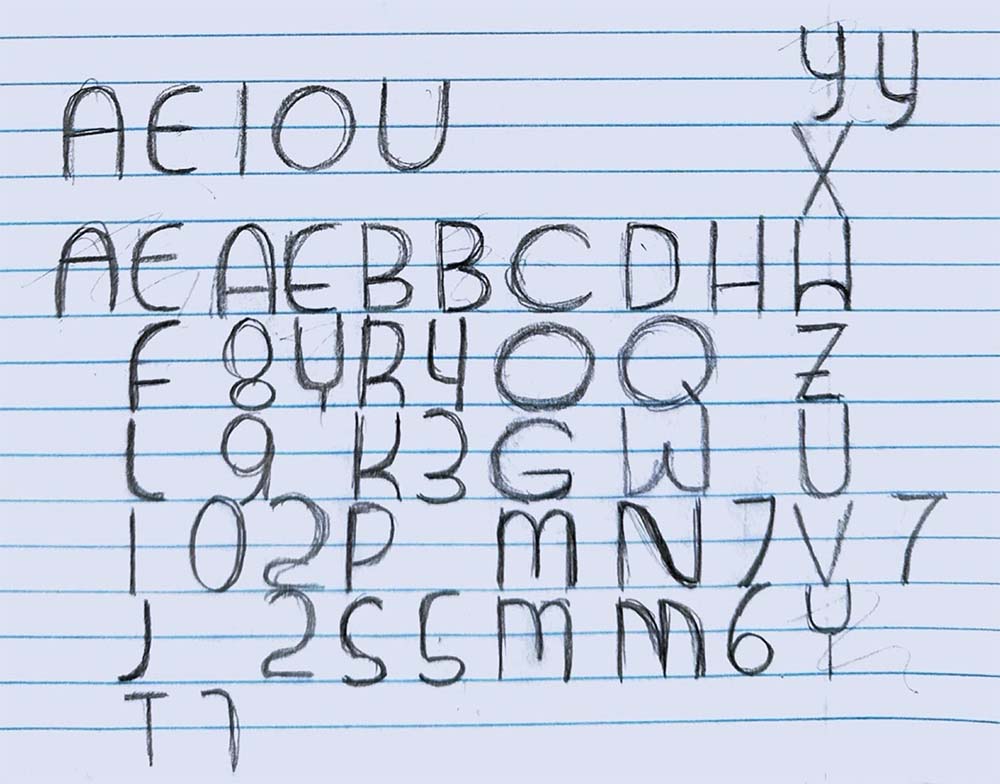 y y
A E I O U
X
A E A E B B C D H W
F 8 Y R 4 O Q Z
L 9 K 3 G W U
I 0 2 P M N 7 V 7
J 2 S 5 M M 6 Y
T 7